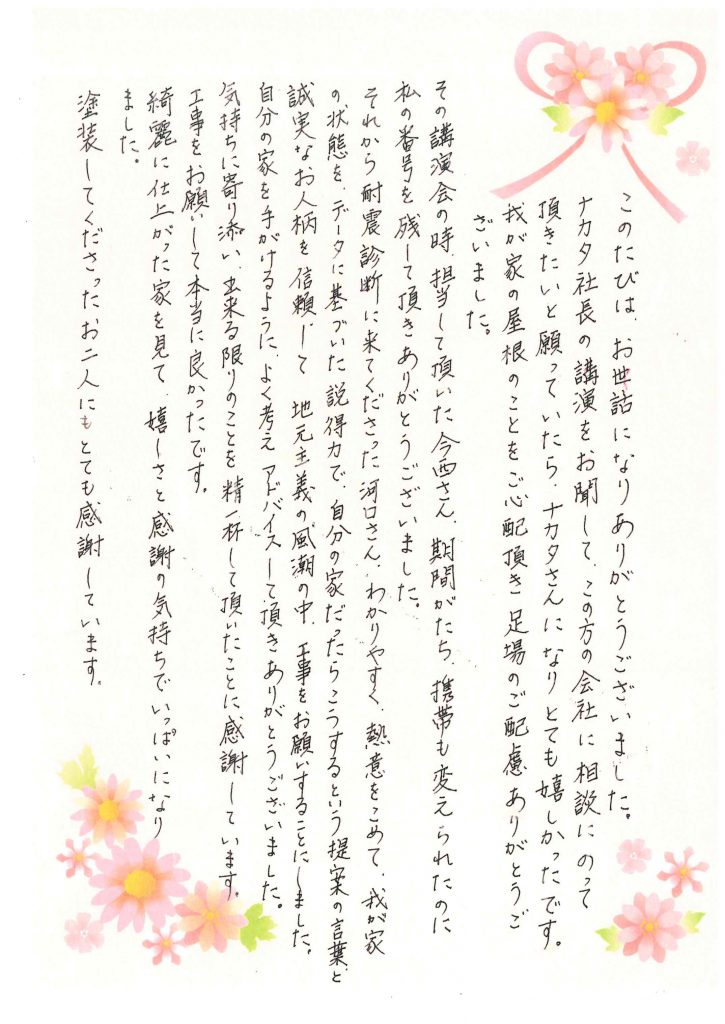 このたびは、お世話になりありがとうございました。
ナカタ社長の講演をお聞して、この方の会社に相談にのって
頂きたいと願っていたら、ナカタさんになりとても嬉しかったです。
我が家の屋根のことをご心配頂き足場のご配慮ありがとうご
ざいました。
その講演会の時、担当して頂いた今西さん、期間がたち、携帯も変えられたのに
私の番号を残して頂きありがとうございました。
それから耐震診断に来てくださった河口さん、わかりやすく、熱意をこめて、我が家
の状態を、データに基づいた説得力で、自分の家だったらこうするという提案の言葉と
誠実なお人柄を信頼して 地元主義の風潮の中、工事をお願いすることにしました。
自分の家を手がけるように、よく考えアドバイスして頂きありがとうございました。
気持ちに寄り添い、出来る限りのことを精一杯して頂いたことに感謝しています。
工事をお願いして本当に良かったです。
綺麗に仕上がった家を見て、嬉しさと感謝の気持ちでいっぱいになり
ました。
塗装してくださったお二人にもとても感謝しています。